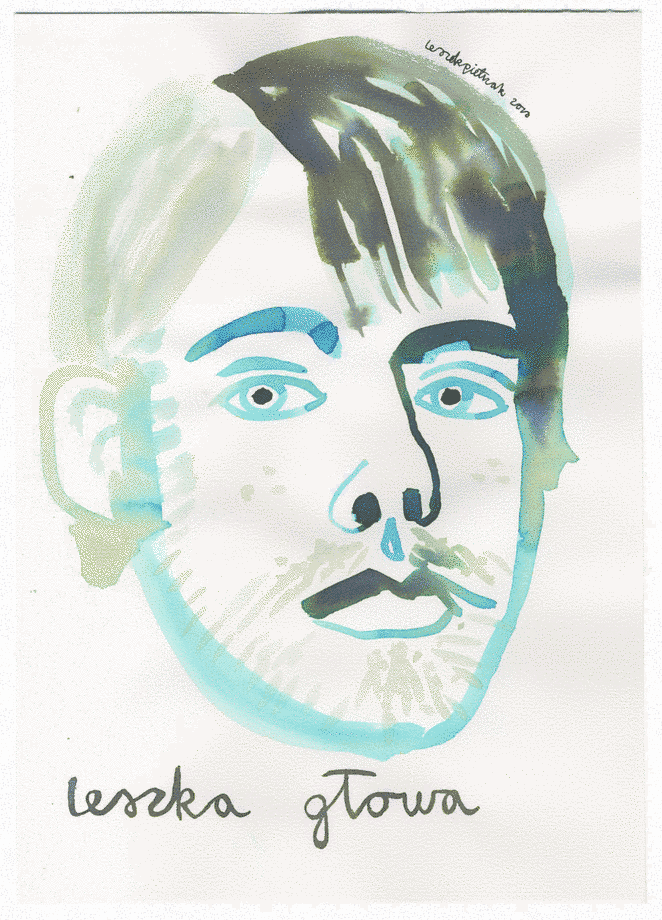 leszekpietrzak 2020
leszka głowa